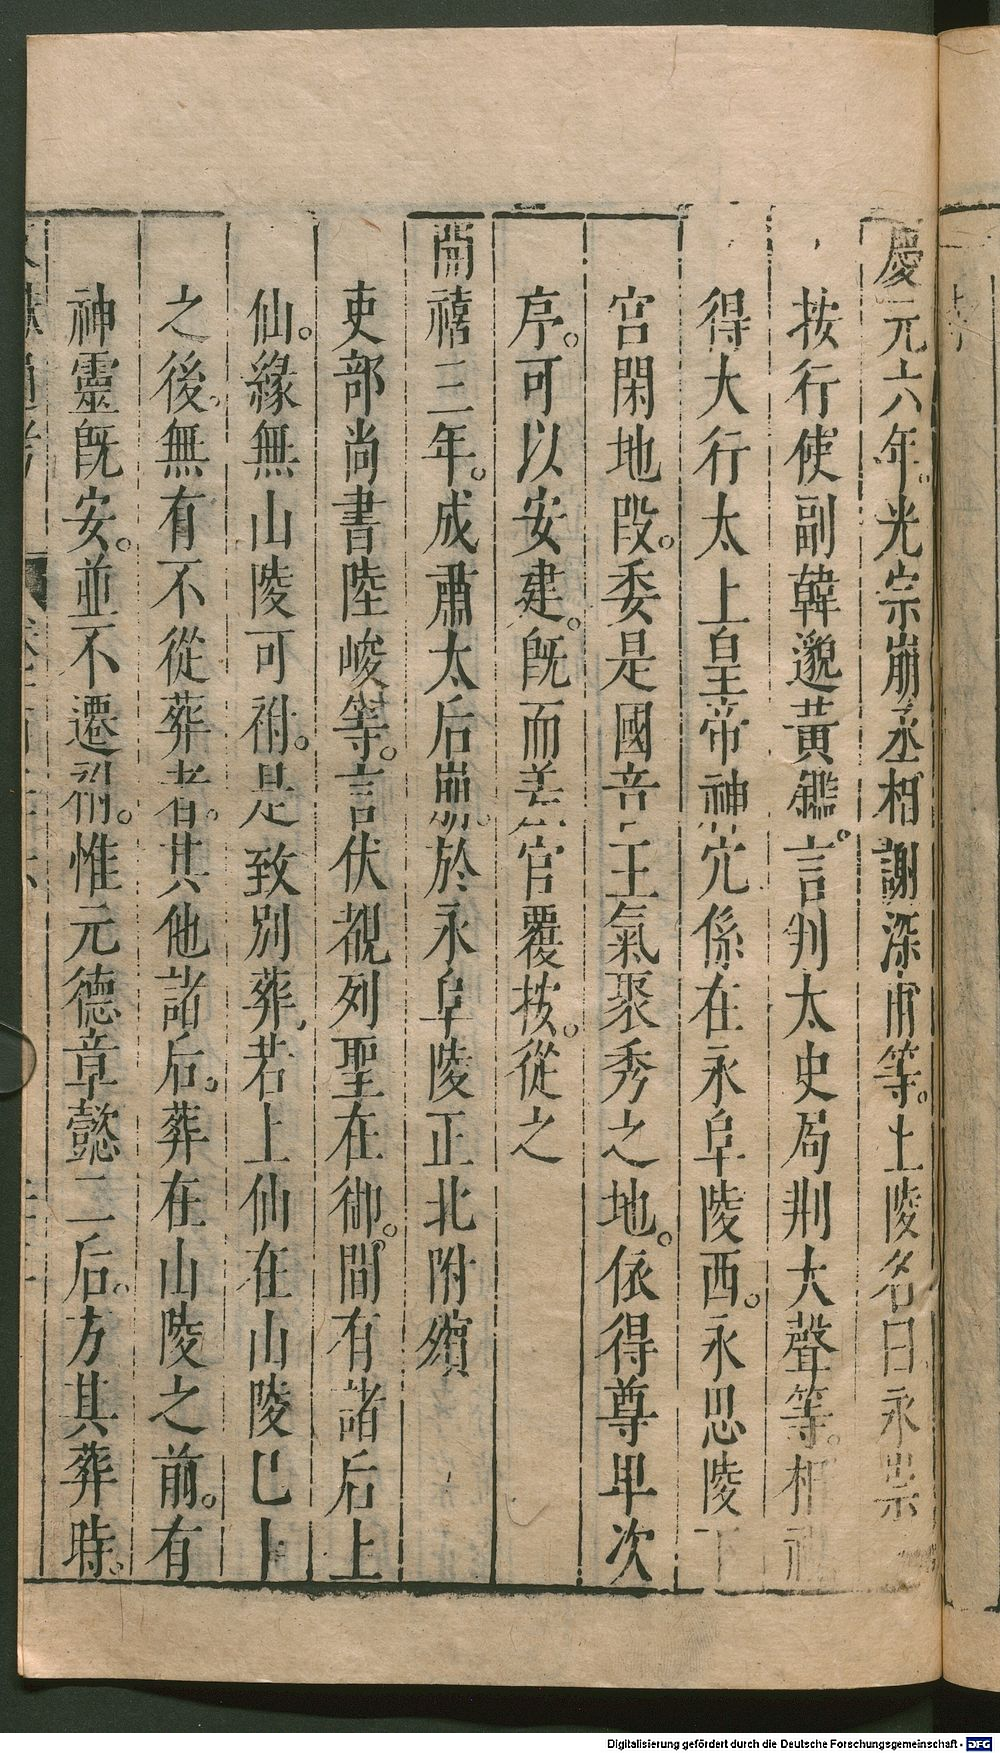 慶元六年。光宗崩丞相謝深甫等。上陵名曰永崇
按行使副韓邈黃鑑。言判太史局荆大聲等。相視
得大行太上皇帝神穴係在永阜陵西。永思陵下
宮閑地段。委是國音王氣聚秀之地。依得尊卑次
序。可以安建。旣而差官覆按。從之
開禧三年。成肅太后崩。於永阜陵正北附殯
吏部尚書陸峻等。言伏覩列聖在御。間有諸后上
仙。緣無山陵可祔。是致別葬。若上仙在山陵已卜
之後。無有不從葬者。其他諸后。葬在山陵之前。有
神靈旣安。並不遷祔。惟元德章懿二后。方其葬時。
文獻通考
Digitalisierung gefördert durch die Deutsche Forschungsgemeinschaft - DFG